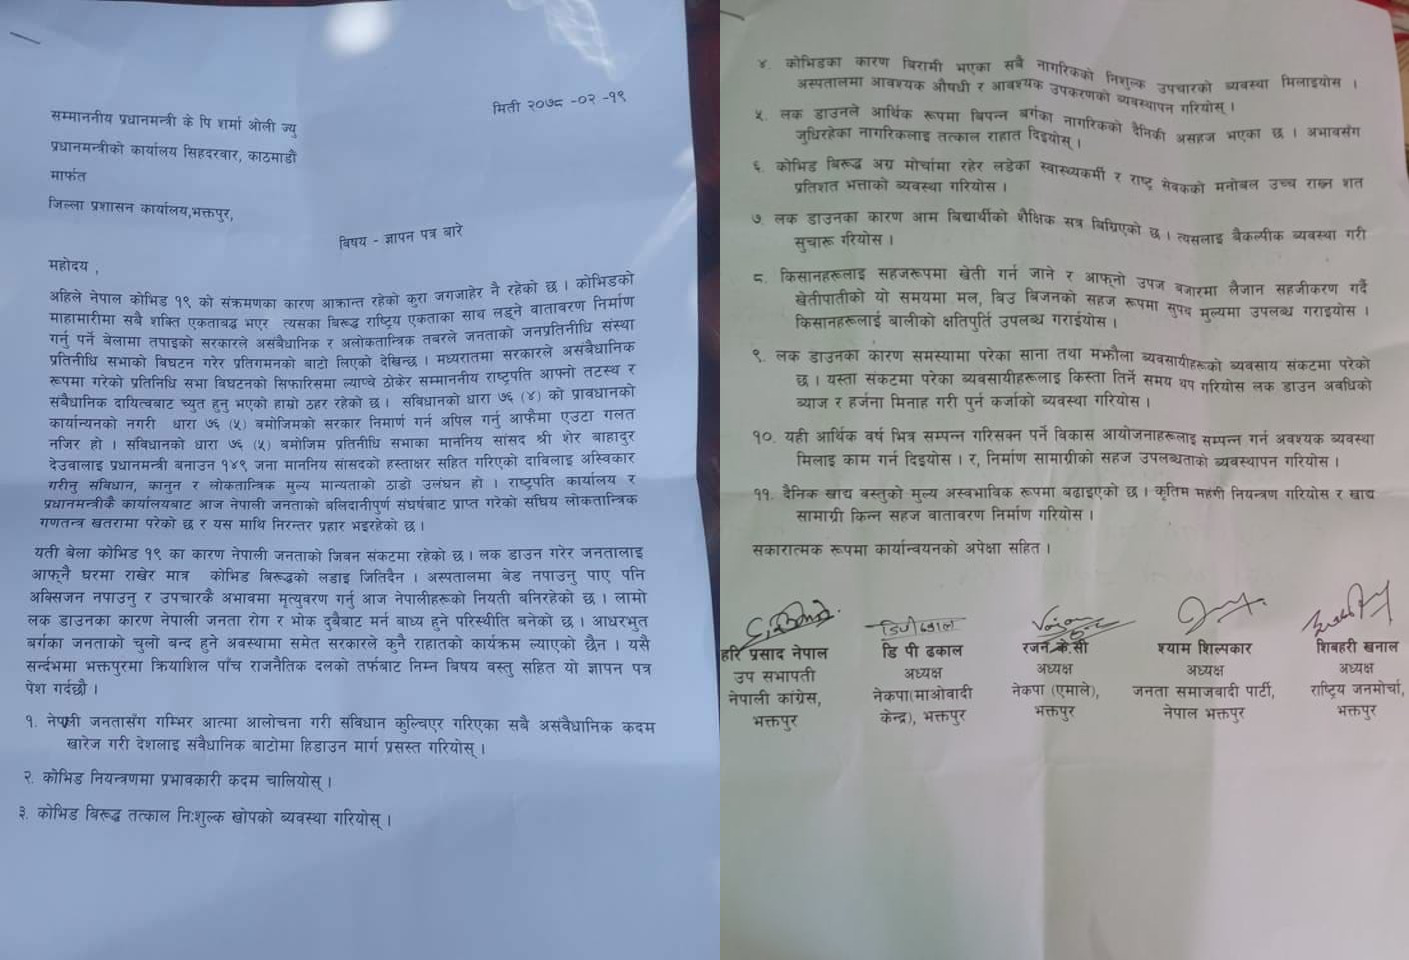 मिती २०७८ -०२ -१९
सम्माननीय प्रधानमन्त्री के पि शर्मा ओली ज्यु
प्रधानमन्त्रीको कार्यालय सिहदरवार, काठमाडौं
मार्फत
जिल्ला प्रशासन कार्यालय,भक्तपुर,
बिषय - ज्ञापन पत्र बारे
महोदय ,
अहिले नेपाल कोभिड १९ को संक्रमणका कारण आक्रान्त रहेको कुरा जगजाहेर नै रहेको छ । कोभिडको
माहामारीमा सबै शक्ति एकताबद्ध भएर त्यसका बिरूद्ध राष्ट्रिय एकताका साथ लड्ने वातावरण निर्माण
गर्नु पर्ने बेलामा तपाइको सरकारले असंबैधानिक र अलोकतान्त्रिक तबरले जनताको जनप्रतिनीधि संस्था
प्रतिनीधि सभाको बिघटन गरेर प्रतिगमनको बाटो लिएको देखिन्छ । मध्यरातमा सरकारले असंबैधानिक
रूपमा गरेको प्रतिनिधि सभा बिघटनको सिफारिसमा ल्याप्चे ठोकेर सम्माननीय राष्ट्रपति आफ्नो तटस्थ र
संबैधानिक दायित्वबाट च्युत हुनु भएको हाम्रो ठहर रहेको छ । संविधानको धारा ७६ (४) को प्रावधानको
कार्यान्यनको नगरी धारा ७६ (५) बमोजिमको सरकार निमार्ण गर्न अपिल गर्नु आफैमा एउटा गलत
नजिर हो । संविधानको धारा ७६ (५) बमोजिम प्रतिनीधि सभाका माननिय सांसद श्री शेर बाहादुर
देउवालाइ प्रधानमन्त्री बनाउन १४९ जना माननिय सांसदको हस्ताक्षर सहित गरिएको दाविलाइ अस्विकार
गरीनु संविधान, कानुन र लोकतान्त्रिक मुल्य मान्यताको ठाडो उलंघन हो । राष्ट्रपति कार्यालय र
प्रधानमन्त्रीकै कार्यालयबाट आज नेपाली जनताको बलिदानीपुर्ण संघर्षबाट प्राप्त गरेको संघिय लोकतान्त्रिक
गणतन्त्र खतरामा परेको छ र यस माथि निरन्तर प्रहार भइरहेको छ ।
यती बेला कोभिड १९ का कारण नेपाली जनताको जिवन संकटमा रहेको छ । लक डाउन गरेर जनतालाइ
आफ्नै घरमा राखेर मात्र कोभिड बिरूद्धको लडाइ जितिदैन । अस्पतालमा बेड नपाउनु पाए पनि
अक्सिजन नपाउनु र उपचारकै अभावमा मृत्युवरण गर्नु आज नेपालीहरूको नियती बनिरहेको छ । लामो
लक डाउनका कारण नेपाली जनता रोग र भोक दुबैबाट मर्न बाध्य हुने परिस्थीति बनेको छ । आधरभुत
बर्गका जनताको चुलो बन्द हुने अवस्थामा समेत सरकारले कुनै राहातको कार्यक्रम ल्याएको छैन । यसै
सर्न्दभमा भक्तपुरमा क्रियाशिल पाँच राजनैतिक दलको तर्फबाट निम्न बिषय वस्तु सहित यो ज्ञापन पत्र
पेश गर्दछौ ।
१. नेपाली जनतासँग गम्भिर आत्मा आलोचना गरी संविधान कुल्चिएर गरिएका सबै असंवैधानिक कदम
खारेज गरी देशलाइ संवैधानिक बाटोमा हिडाउन मार्ग प्रसस्त गरियोस् ।
२. कोभिड नियन्त्रणमा प्रभावकारी कदम चालियोस् ।
३. कोभिड बिरूद्ध तत्काल निःशुल्क खोपको ब्यवस्था गरियोस् ।
४. कोभिडका कारण बिरामी भएका सबै नागरिकको निशुल्क उपचारको ब्यवस्था मिलाइयोस ।
अस्पतालमा आवश्यक औषधी र आवश्यक उपकरणको ब्यवस्थापन गरियोस् ।
५. लक डाउनले आर्थिक रूपमा बिपन्न बर्गका नागरिकको दैनिकी असहज भएका छ । अभावसँग
जुधिरहेका नागरिकलाइ तत्काल राहात दिइयोस् ।
६. कोभिड बिरूद्ध अग्र मोर्चामा रहेर लडेका स्वास्थ्यकर्मी र राष्ट्र सेवकको मनोबल उच्च राख्न शत
प्रतिशत भत्ताको ब्यवस्था गरियोस ।
७. लक डाउनका कारण आम बिद्यार्थीको शैक्षिक सत्र बिग्रिएको छ । त्यसलाइ बैकल्पीक ब्यवस्था गरी
सुचारू गरियोस ।
८. किसानहरूलाइ सहजरूपमा खेती गर्न जाने र आफ्नो उपज बजारमा लैजान सहजीकरण गर्दै
खेतीपातीको यो समयमा मल, बिउ बिजनको सहज रूपमा सुपथ मुल्यमा उपलब्ध गराइयोस ।
किसानहरूलाई बालीको क्षतिपुर्ति उपलब्ध गराईयोस ।
९. लक डाउनका कारण समस्यामा परेका साना तथा मझौला ब्यवसायीहरूको ब्यवसाय संकटमा परेको
छ । यस्ता संकटमा परेका ब्यवसायीहरूलाइ किस्ता तिर्ने समय थप गरियोस लक डाउन अवधिको
ब्याज र हर्जना मिनाह गरी पुर्न कर्जाको ब्यवस्था गरियोस ।
१०. यही आर्थिक वर्ष भित्र सम्पन्न गरिसक्न पर्ने विकास आयोजनाहरूलाइ सम्पन्न गर्न अवश्यक ब्यवस्था
मिलाइ काम गर्न दिइयोस । र, निर्माण सामाग्रीको सहज उपलब्धताको ब्यवस्थापन गरियोस ।
११. दैनिक खाद्य बस्तुको मुल्य अस्वभाविक रूपमा बढाइएको छ । कृतिम महंगी नियन्त्रण गरियोस र खाद्य
सामाग्री किन्न सहज वातावरण निर्माण गरियोस ।
सकारात्मक रूपमा कार्यान्वयनको अपेक्षा सहित ।
डिपी ढकाल
हरि प्रसाद नेपाल डि पी ढकाल रजन के.सी श्याम शिल्पकार शिबहरी खनाल
उप सभापती अध्यक्ष अध्यक्ष अध्यक्ष अध्यक्ष
नेपाली कांग्रेस, नेकपा(माओवादी नेकपा (एमाले), जनता समाजवादी पार्टी, राष्ट्रिय जनमोर्चा,
भक्तपुर केन्द्र), भक्तपुर भक्तपुर नेपाल भक्तपुर भक्तपुर